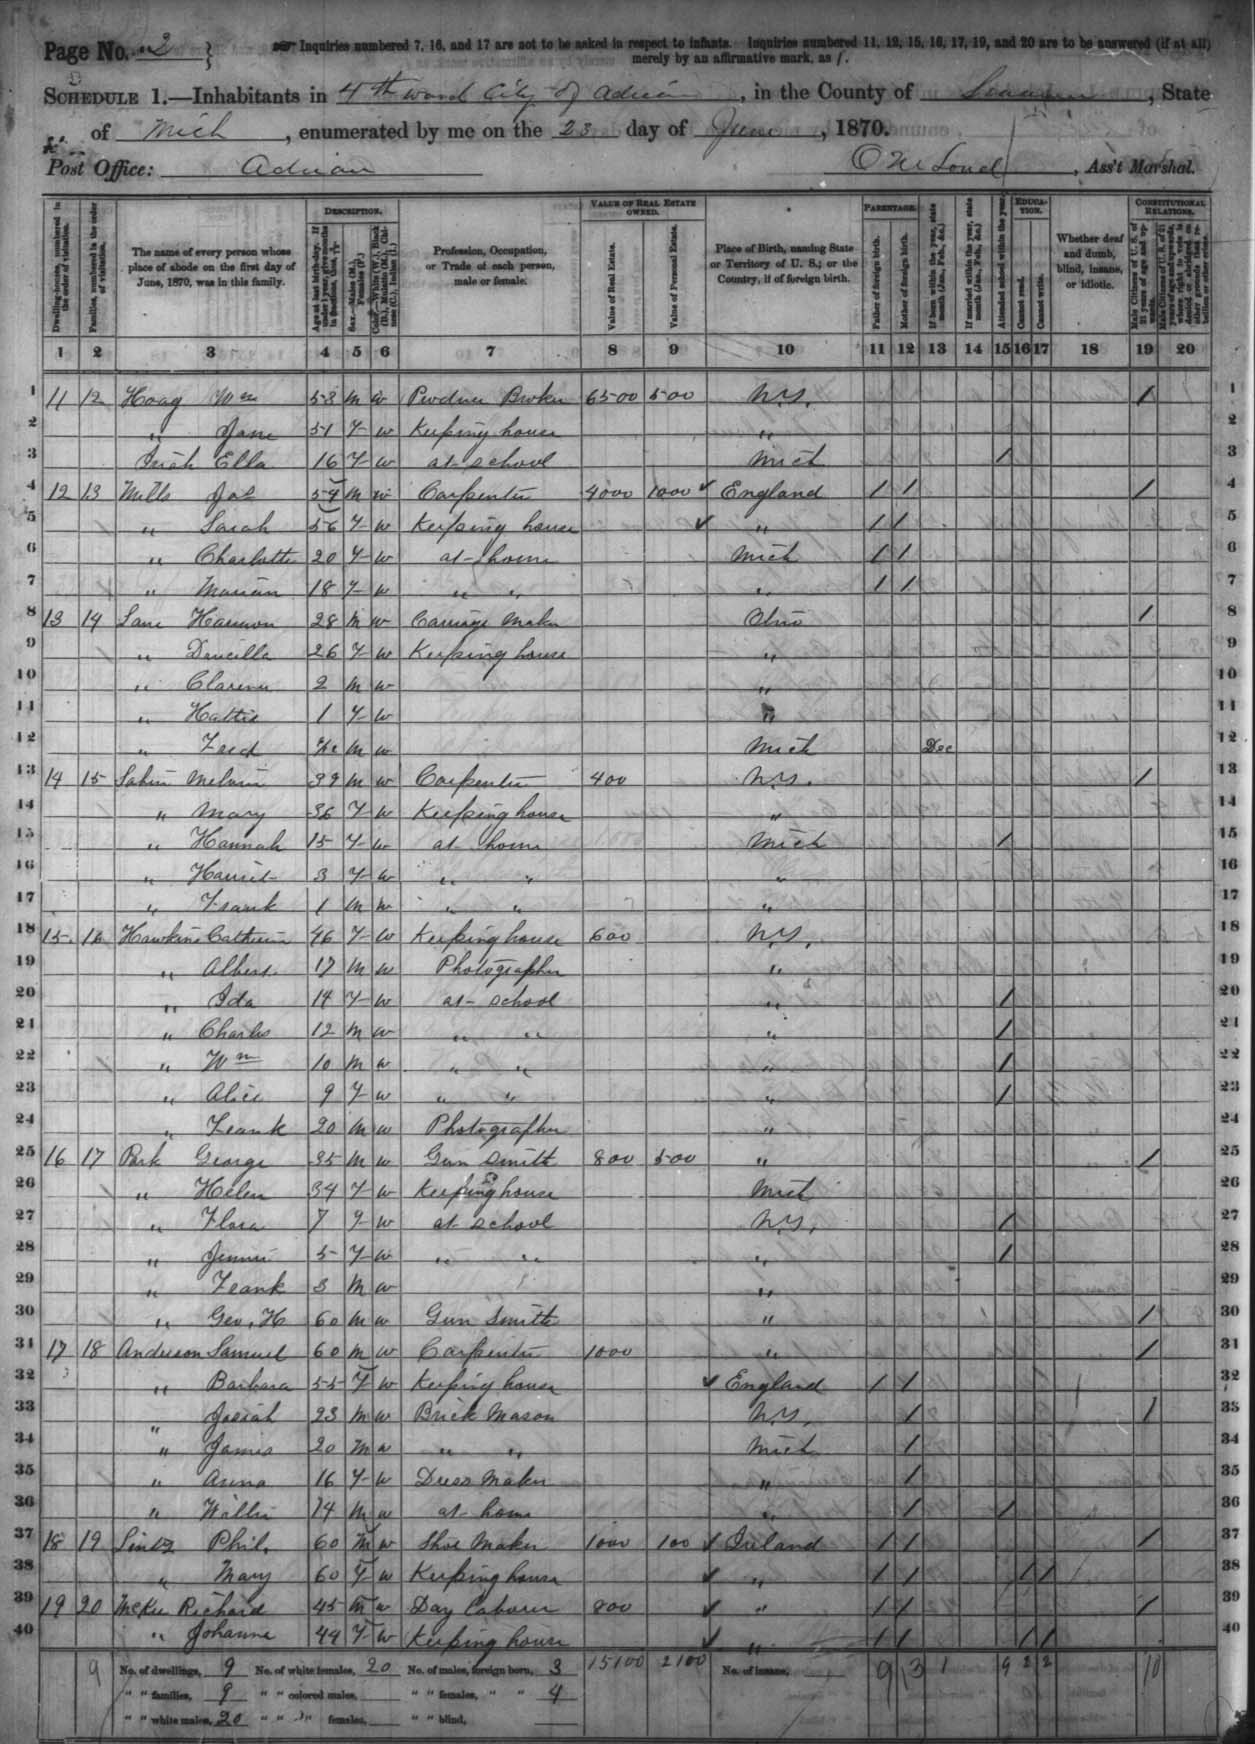 Page No. 2 } Inquiries numbered 7, 16, and 17 are not to be asked in respect to infants. Inquiries numbered 11, 12, 15, 16, 17, 19, and 20 are to be answered (if at all)
merely by an affirmative mark, as /.
SCHEDULE 1.—Inhabitants in 4th ward City of Adrian, in the County of Lenawee, State
of Mich, enumerated by me on the 23 day of June, 1870.
Post Office: Adrian , Ass't Marshal.
Dwelling-houses, numbered in the order of visitation.
Families, numbered in the order of visitation.
The name of every person whose place of abode on the first day of June, 1870, was in this family.
DESCRIPTION.
Age at last birth-day. If under 1 year, give months in fractions, thus, 3/12
Sex.—Males (M.), Females (F.)
Color.—White (W.), Black (B.), Mulatto (M.), Chinese (C.), Indian (I.)
Profession, Occupation, or Trade of each person, male or female.
VALUE OF REAL ESTATE OWNED.
Value of Real Estate.
Value of Personal Estate.
Place of Birth, naming State or Territory of U. S.; or the Country, if of foreign birth.
PARENTAGE.
Father of foreign birth.
Mother of foreign birth.
If born within the year, state month (Jan., Feb., &c.)
If married within the year, state month (Jan., Feb., &c.)
EDUCATION.
Attended school within the year.
Cannot read.
Cannot write.
Whether deaf and dumb, blind, insane, or idiotic.
CONSTITUTIONAL RELATIONS.
Male Citizens of U. S. of 21 years of age and upwards.
1 2 3 4 5 6 7 8 9 10 11 12 13 14 15 16 17 18 19 20
1 11 12 Hoag Wm 53 M W Produce Broker 6500 500 N.Y. / 1
2 " Jane 51 F W Keeping house " 2
3 Irish Ella 16 F W at school Mich / 3
4 12 13 Mills Jas 54 M W Carpenter 4000 1000 ✓ England / / / 4
5 " Sarah 56 F W Keeping house ✓ " / / 5
6 " Charlotte 20 F W at home Mich / / 6
7 " Marian 18 F W " " " / / 7
8 13 14 Lane Harmon 28 M W Carriage Maker Ohio / 8
9 " Drucilla 26 F W Keeping house " 9
10 " Clarence 2 M W " 10
11 " Hattie 1 F W " 11
12 " Fred M W Mich Dec 12
13 14 15 Sabin Melvin 39 M W Carpenter 400 N.Y. / 13
14 " Mary 36 F W Keeping house " 14
15 " Hannah 15 F W at home Mich / 15
16 " Harriet 3 F W " " " 16
17 " Frank 1 M W " " " 17
18 15 16 Hawkins Catherine 46 F W Keeping house 600 N.Y. 18
19 " Albert 17 M W Photographer " 19
20 " Ida 14 F W at school " / 20
21 " Charles 12 M W " " " / 21
22 " Wm 10 M W " " " / 22
23 " Alice 9 F W " " " / 23
24 " Frank 20 M W Photographer " 24
25 16 17 Park George 35 M W Gun Smith 800 500 " / 25
26 " Helen 34 F W Keeping house Mich 26
27 " Flora 7 F W at school N.Y. / 27
28 " Jennie 5 F W " " " / 28
29 " Frank 3 M W " 29
30 " Geo. H 60 M W Gun Smith " / 30
31 17 18 Anderson Samuel 60 M W Carpenter 1000 " / 31
32 " Barbara 55 F W Keeping house ✓ England / / 32
33 " Josiah 23 M W Brick Mason N.Y. / / 33
34 " James 20 M W " " Mich / 34
35 " Anna 16 F W Dress Maker " / 35
36 " Willie 14 M W at home " / / 36
37 18 19 Phil. 60 M W Shoe Maker 1000 100 ✓ Ireland / / / 37
38 " Mary 60 F W Keeping house ✓ " / / / / 38
39 19 20 McKee Richard 45 M W Day Laborer 800 ✓ " / / / 39
40 " Johanna 44 F W Keeping house ✓ " / / / / 40
9 No. of dwellings, 9 No. of white females, 20 No. of males, foreign born, 3 15100 2100 No. of insane, 9 13 1 9 2 2 10
" " families, 9 " " colored males, " " females, " " 4
" " white males, 20 " " " females, " " blind,